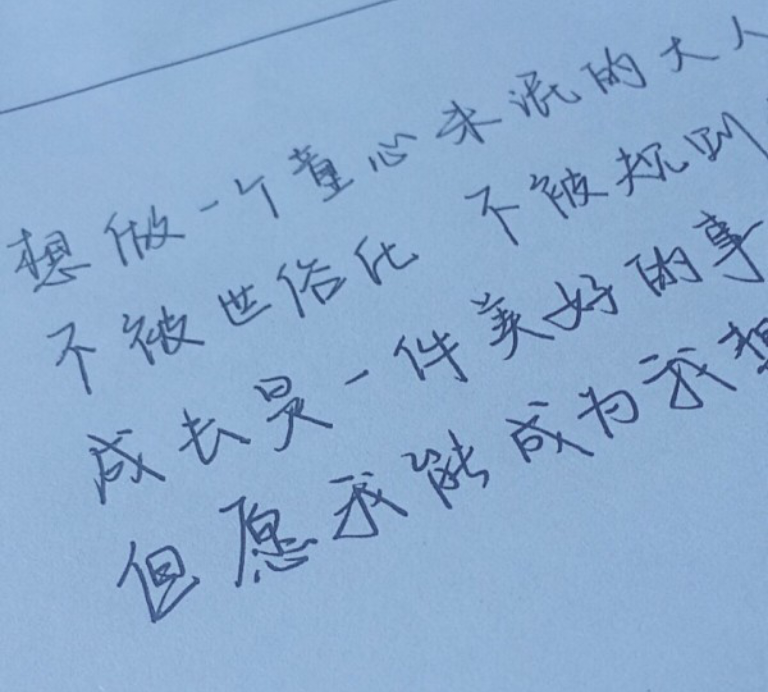 想做一个童心未泯的大人
不被世俗化 不被规则
成长是一件美好的事
但愿我能成为我想